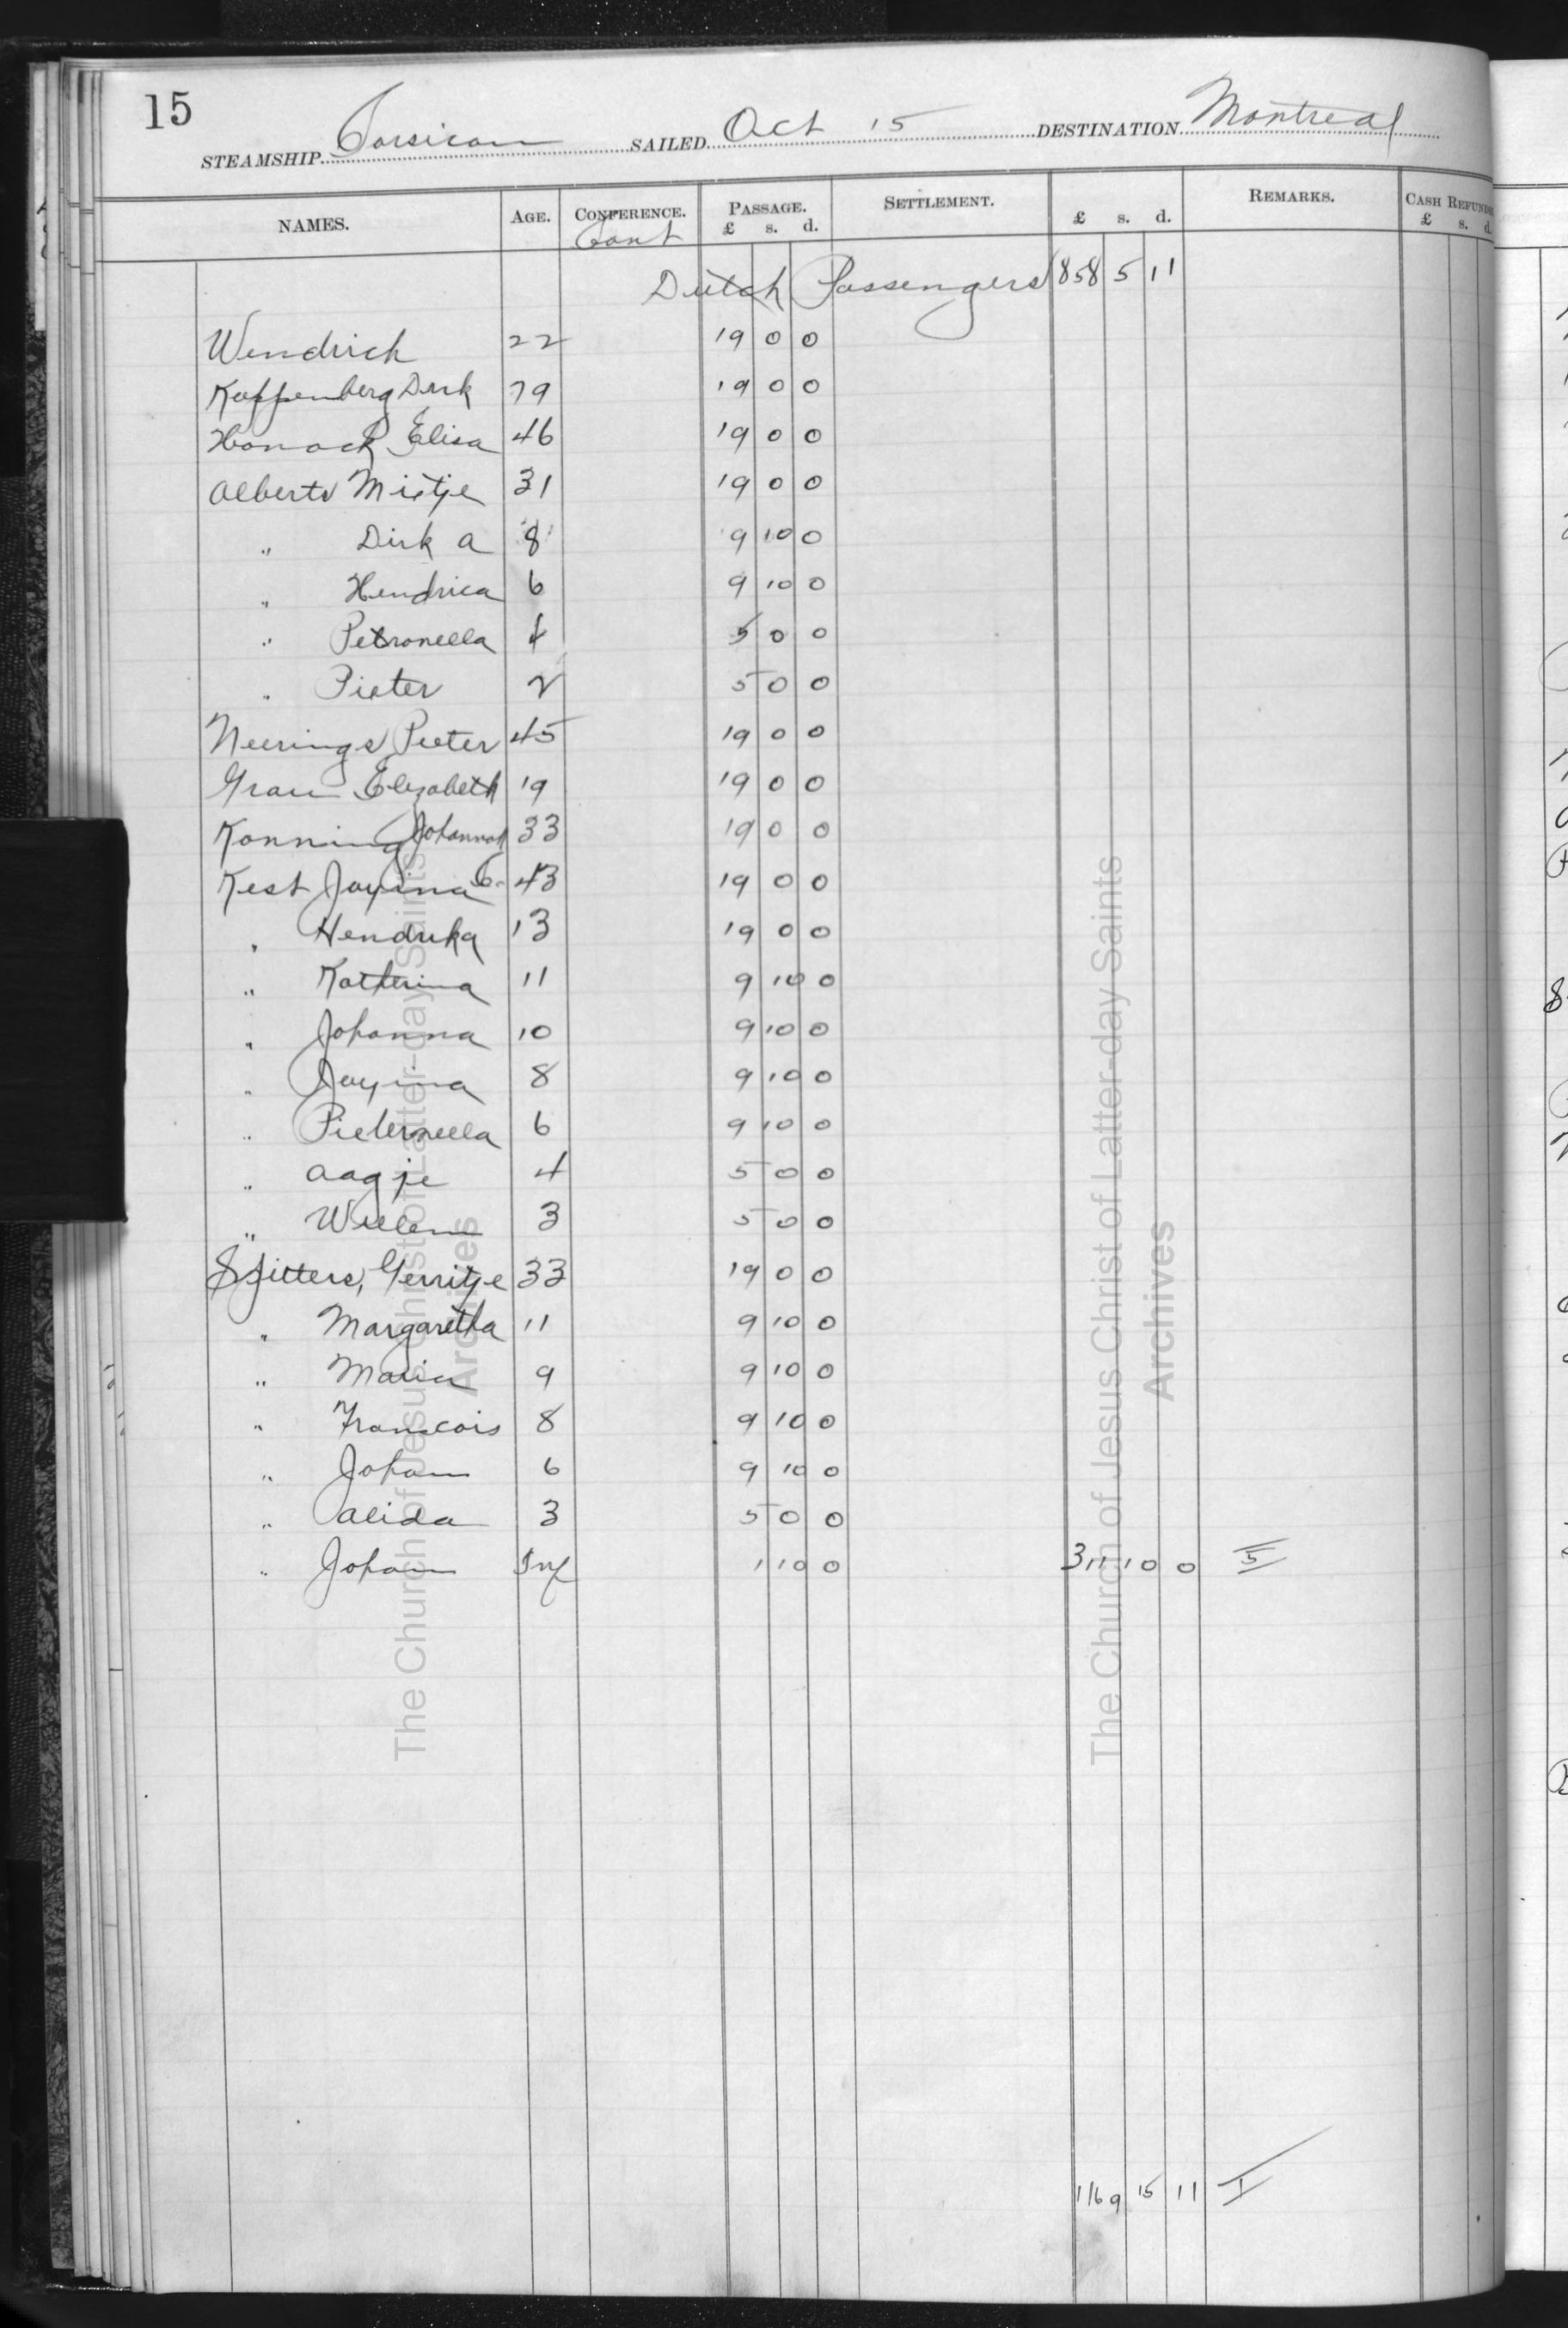 15
STEAMSHIP Corsican SAILED Oct 15 DESTINATION Montreal
NAMES. AGE. CONFERENCE. PASSAGE. £ s. d. SETTLEMENT. £ s. d. REMARKS. CASH REFUNDE £ s. d.
Cont
Dutch Passengers 858 5 11
Wendrich 22 19 0 0
Kuppenberg Dirk 79 19 0 0
Honack Elisa 46 19 0 0
Alberts Mietje 31 19 0 0
" Dirk A 8 9 10 0
" Hendrica 6 9 10 0
" Petronella 4 5 0 0
" Pieter 2 5 0 0
Neerings Pieter 45 19 0 0
Elizabeth 19 19 0 0
Konning Johannah 33 19 0 0
Kest Jayina C. 43 19 0 0
" Hendrika 13 19 0 0
" Katherina 11 9 10 0
" Johanna 10 9 10 0
" Jayina 8 9 10 0
" Pieternella 6 9 10 0
" Aagje 4 5 0 0
" Willem 3 5 0 0
Sjitters, Gerritje 33 19 0 0
" Margaretha 11 9 10 0
" Maria 9 9 10 0
" Franscois 8 9 10 0
" Johan 6 9 10 0
" Alida 3 5 0 0
" Johan Inf 1 10 0 311 10 0 5
1169 15 11 I
The Church of Jesus Christ of Latter-day Saints
Archives
The Church of Jesus Christ of Latter-day Saints
Archives